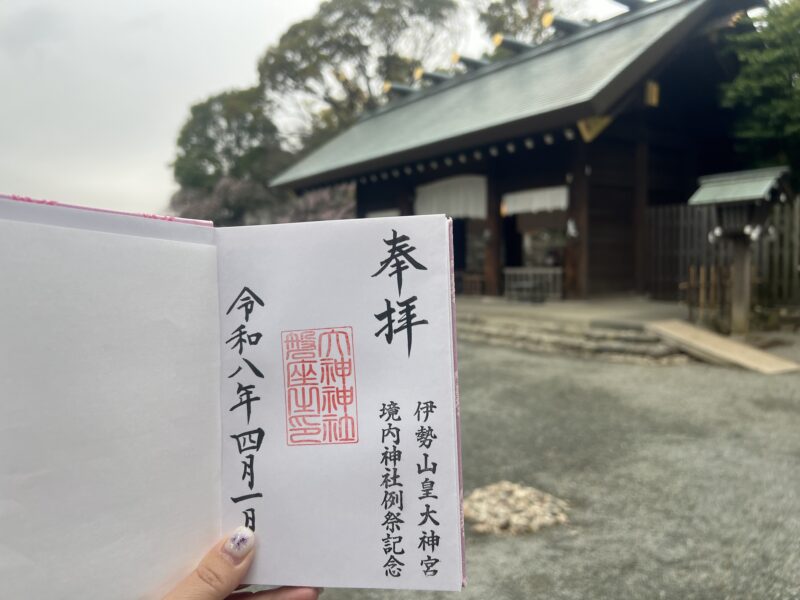 奉拝
伊勢山皇大神宮
境内神社例祭記念
大神神社
磐座之印
令和八年四月一日